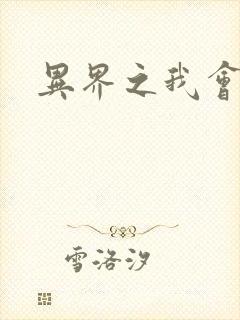 異界之我會
雪洛汐